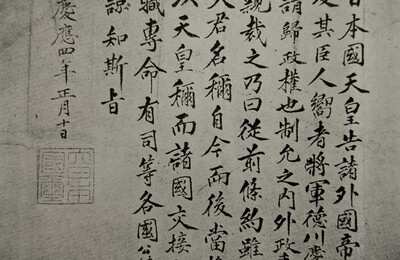 日本國天皇告諸外國帝
及其臣人嚮者將軍德川慶
請歸政權也制允之內外政
親裁之乃曰從前條約雖
大君名稱自今而後當
以天皇稱而諸國交接
職專命有司等各國公
諒知斯旨
慶應四年正月十日
大日本國璽